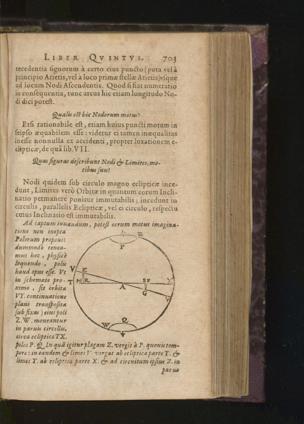 LIBER QVINTVS. 703
tecedentia signorum à certo eius puncto (puta vel à
principio Arietis, vel à loco primæ stellæ Arietis) usque
ad locum Nodi Ascendentis. Quod si fiat numeratio
in consequentia, tunc arcus hic etiam longitudo No-
di dici potest.
Qualis est hic Nodorum motus?
Etsi rationabile est, etiam huius puncti motum in
seipso æquabilem esse: videtur ei tamen inæqualitas
inesse nonnulla ex accidenti, propter luxationem e-
clipticæ, de qua lib. VII.
Quas figuras describunt Nodi & Limites, mo-
tibus suis?
Nodi quidem sub circulo magno eclipticæ ince-
dunt, Limites verò Orbitæ in quantum eorum Incli-
natio permanere ponitur immutabilis; incedunt in
circulis, parallelis Eclipticæ, vel ei circulo, respectu
cuius Inclinatio est immutabilis.
Ad captum iuvandum, potest eorum motus imagina-
tione non inepta
Polorum proponi:
dummodo tenea-
mus hoc, physicè
loquendo, polis
haud opus esse. Vt
in schemate pro-
ximo, sit orbita
VY. continuatione
plani transpositæ
sub fixas; eius poli
Z. W. moveantur
in parvis circellis,
circa eclipticæ TX.
polos P. Q. In quâ igitur plagam Z. vergit à P. quovis tem-
pore: in eandem & limes V. vergit ab eclipticæ parte T. &
limes Y. ab eclipticæ parte X. & ad circuitum ipsius Z. in
P
V
T
R
A
G
W
Q